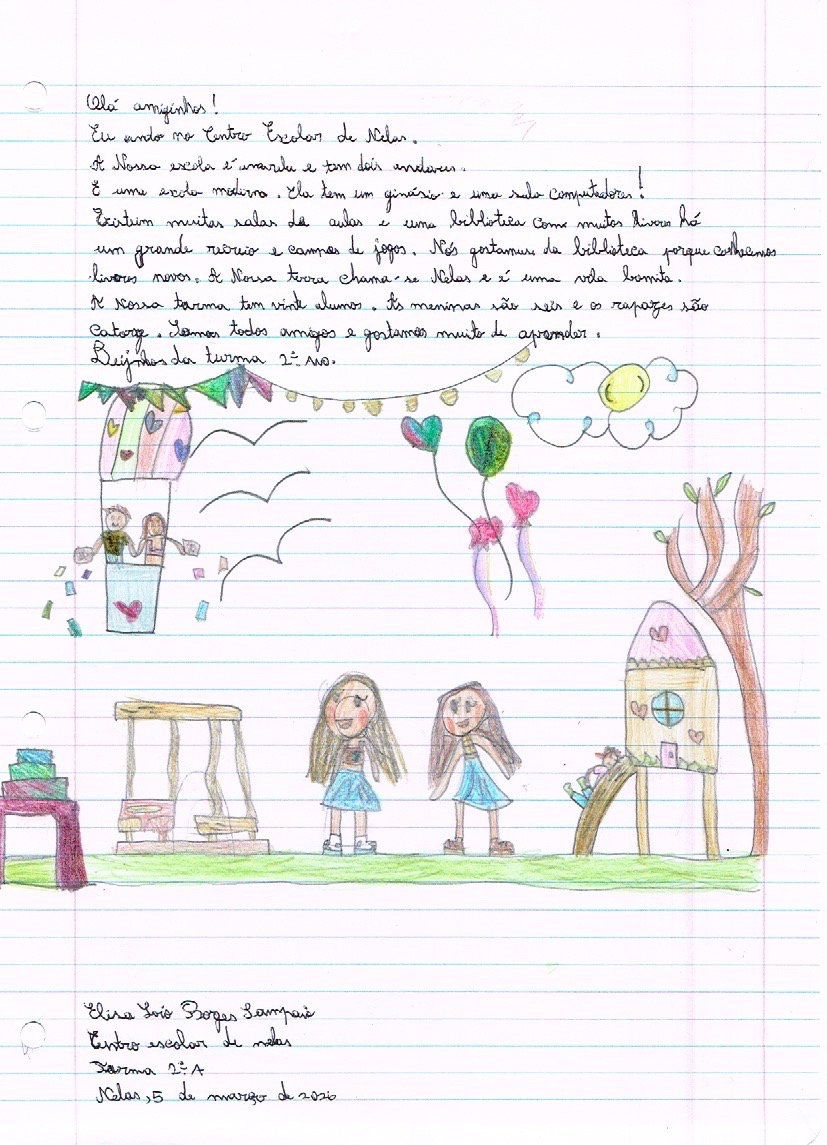 Olá amiginhos!
Eu ando no Centro Escolar de Nelas.
A Nossa escola é amarela e tem dois andares.
É uma escola moderna. Ela tem um ginásio e uma sala computadores!
Existem muitas salas de aulas e uma biblioteca com muitos livros há
um grande recreio e campos de jogos. Nós gostamos da biblioteca porque conhecemos
livros novos. A Nossa terra chama-se Nelas e é uma vila bonita.
A Nossa turma tem vinte alunos. As meninas são seis e os rapazes são
Catorze. Somos todos amigos e gostamos muito de aprender.
Beijinhos da turma 2º Ano.
Elisa Loio Borges Sampaio
Centro escolar de nelas
Turma 2º A
Nelas, 5 de março de 2026